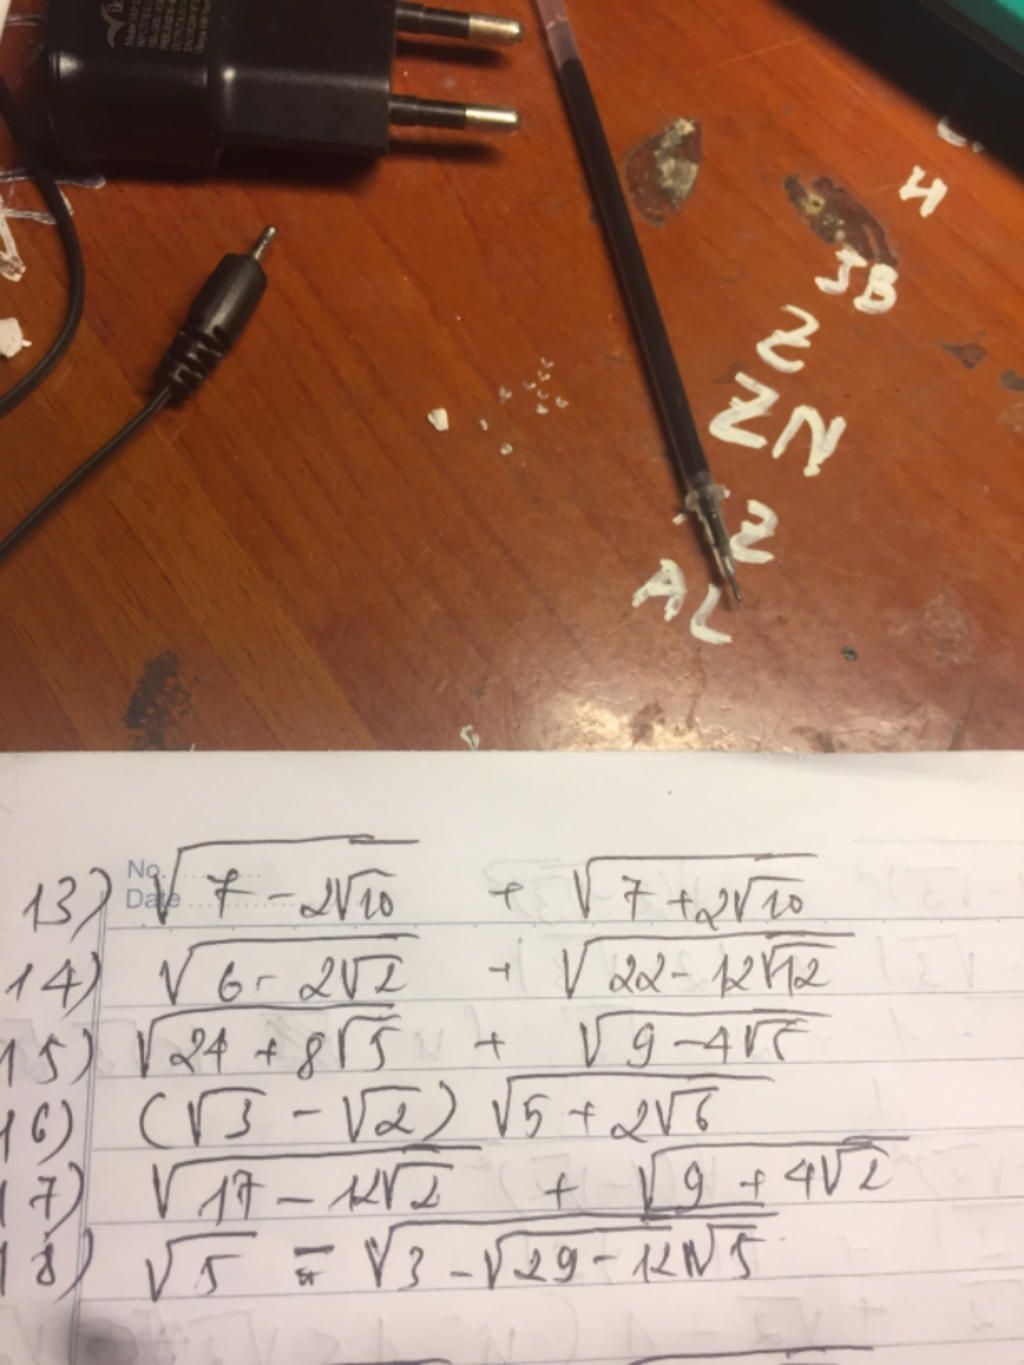 H
JB
Z
ZN
Z
AL
No.
Date
13) √(7 - 2√10) + √(7 + 2√10)
14) √(6 - 2√2) + √(22 - 12√12)
15) √(24 + 8√5) + √(9 - 4√5)
16) (√3 - √2) √(5 + 2√6)
17) √(17 - 12√2) + √(9 + 4√2)
18) √5 = √(3 - √(29 - 12√5))